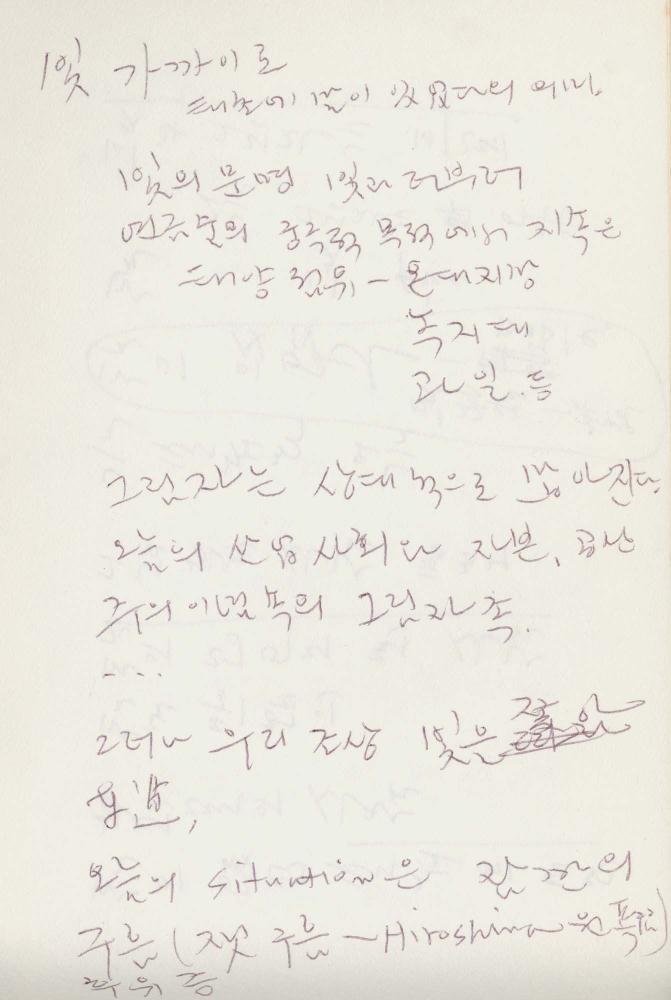 빛 가까이로
태초에 빛이 있었다의 의미.
빛의 문명 빛과 더부러
연금술의 궁극적 목적에서 지속은
태양 범위 - 온대지방
녹지대
과일. 등
그림자는 상대적으로 짧아진다.
오늘의 산업사회와 자본, 공산
주의 이념 쪽의 그림자 쪽.
....
그러나 우리 조상 빛은
오늘의 situation은 잠깐의
주름 (잿 주름 - Hiroshima 원폭)
따위 등